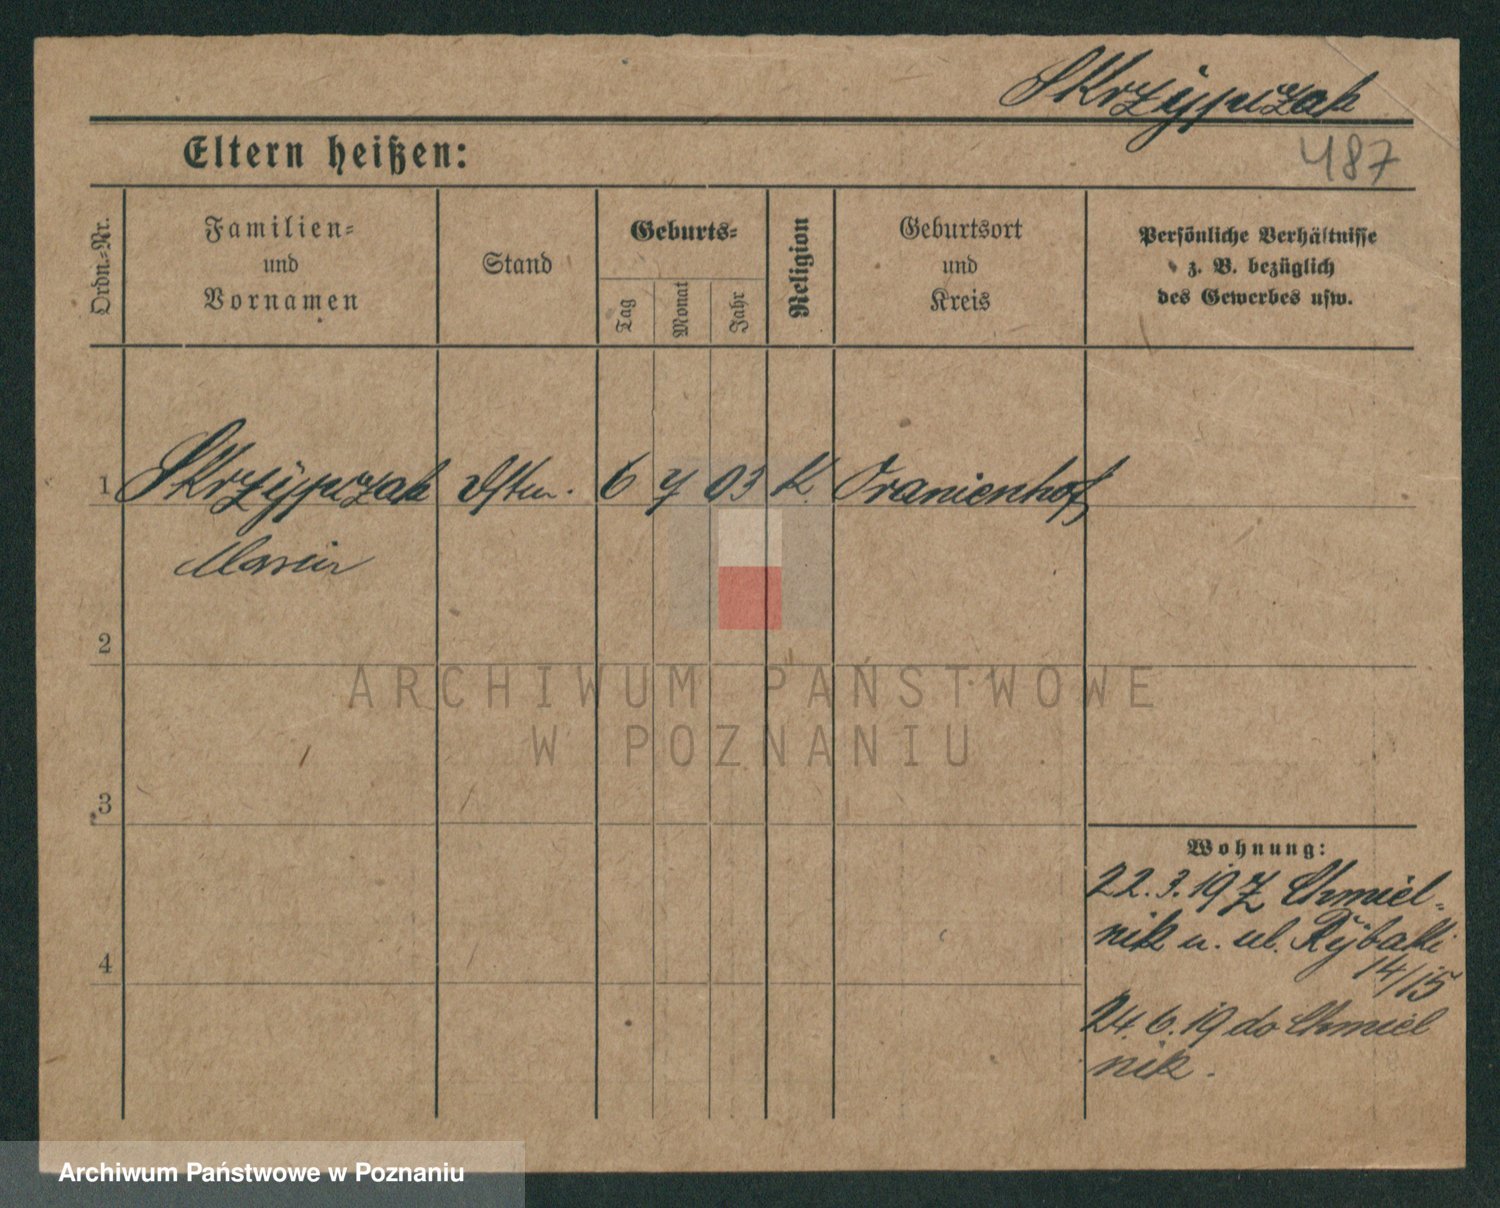 Skrzypczak
487
Eltern heißen:
Ordn.-Nr.
Familien-
und
Vornamen
Stand
Geburts-
Tag
Monat
Jahr
Religion
Geburtsort
und
Kreis
Persönliche Verhältnisse
z. B. bezüglich
des Gewerbes usw.
1 Skrzypczak 6 7 03 K. Oranienhof
Marcin
2
ARCHIWUM PAŃSTWOWE
W POZNANIU
3
Wohnung:
22.3.19 Z Chmiel-
nik u. ul. Rybaki
14/15
4
24.6.19 do Chmiel
nik.
Archiwum Państwowe w Poznaniu